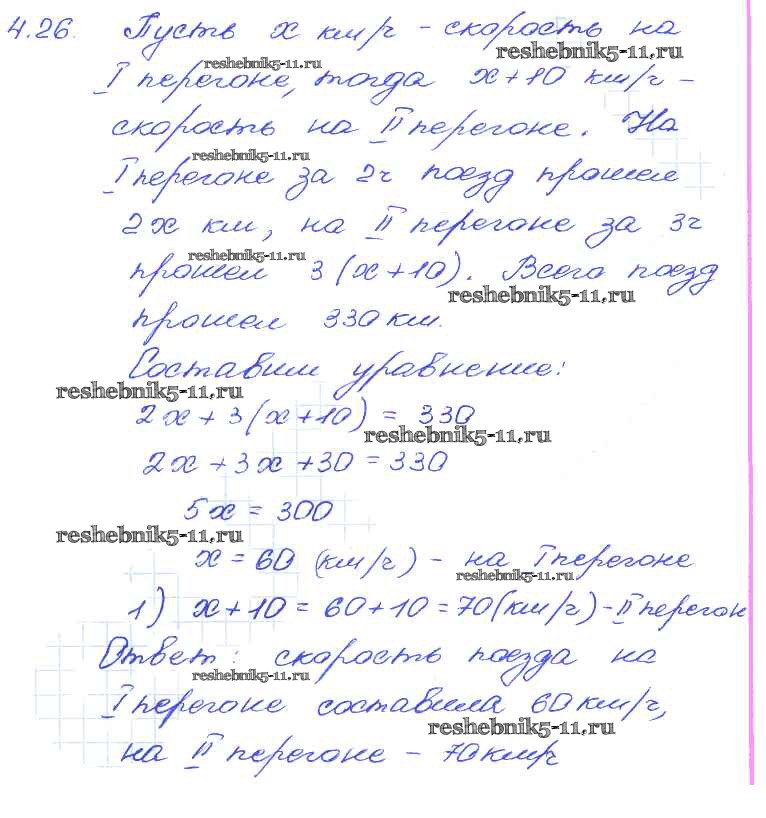 4.26. Пусть x км/ч - скорость на
reshebnik5-11.ru
reshebnik5-11.ru
I перегоне, тогда x+10 км/ч -
скорость на II перегоне. На
reshebnik5-11.ru
I перегоне за 2ч поезд прошел
2x км, на II перегоне за 3ч
reshebnik5-11.ru
прошел 3(x+10). Всего поезд
reshebnik5-11.ru
прошел 330 км.
Составим уравнение:
reshebnik5-11.ru
2x+3(x+10) = 330
reshebnik5-11.ru
2x+3x+30=330
5x = 300
reshebnik5-11.ru
x = 60 (км/ч) - на I перегоне
reshebnik5-11.ru
1) x+10 = 60+10 = 70(км/ч)-II перегон
Ответ: скорость поезда на
reshebnik5-11.ru
I перегоне составила 60 км/ч,
reshebnik5-11.ru
на II перегоне - 70 км/ч